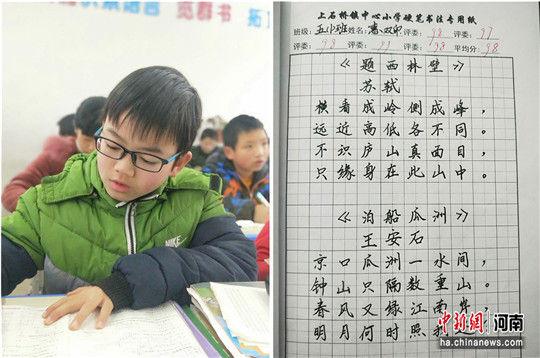 览群书
拓
NIKE
上石桥镇中心小学硬笔书法专用纸
班级: 五(1)班 姓名: 评委: 98 评委: 97
评委: 98 评委: 99 评委: 98 平均分: 98
《题西林壁》
苏轼
横看成岭侧成峰，
远近高低各不同。
不识庐山真面目，
只缘身在此山中。
《泊船瓜洲》
王安石
京口瓜洲一水间，
钟山只隔数重山。
春风又绿江南岸，
明月何时照我
中新网 河南
ha.chinanews.com